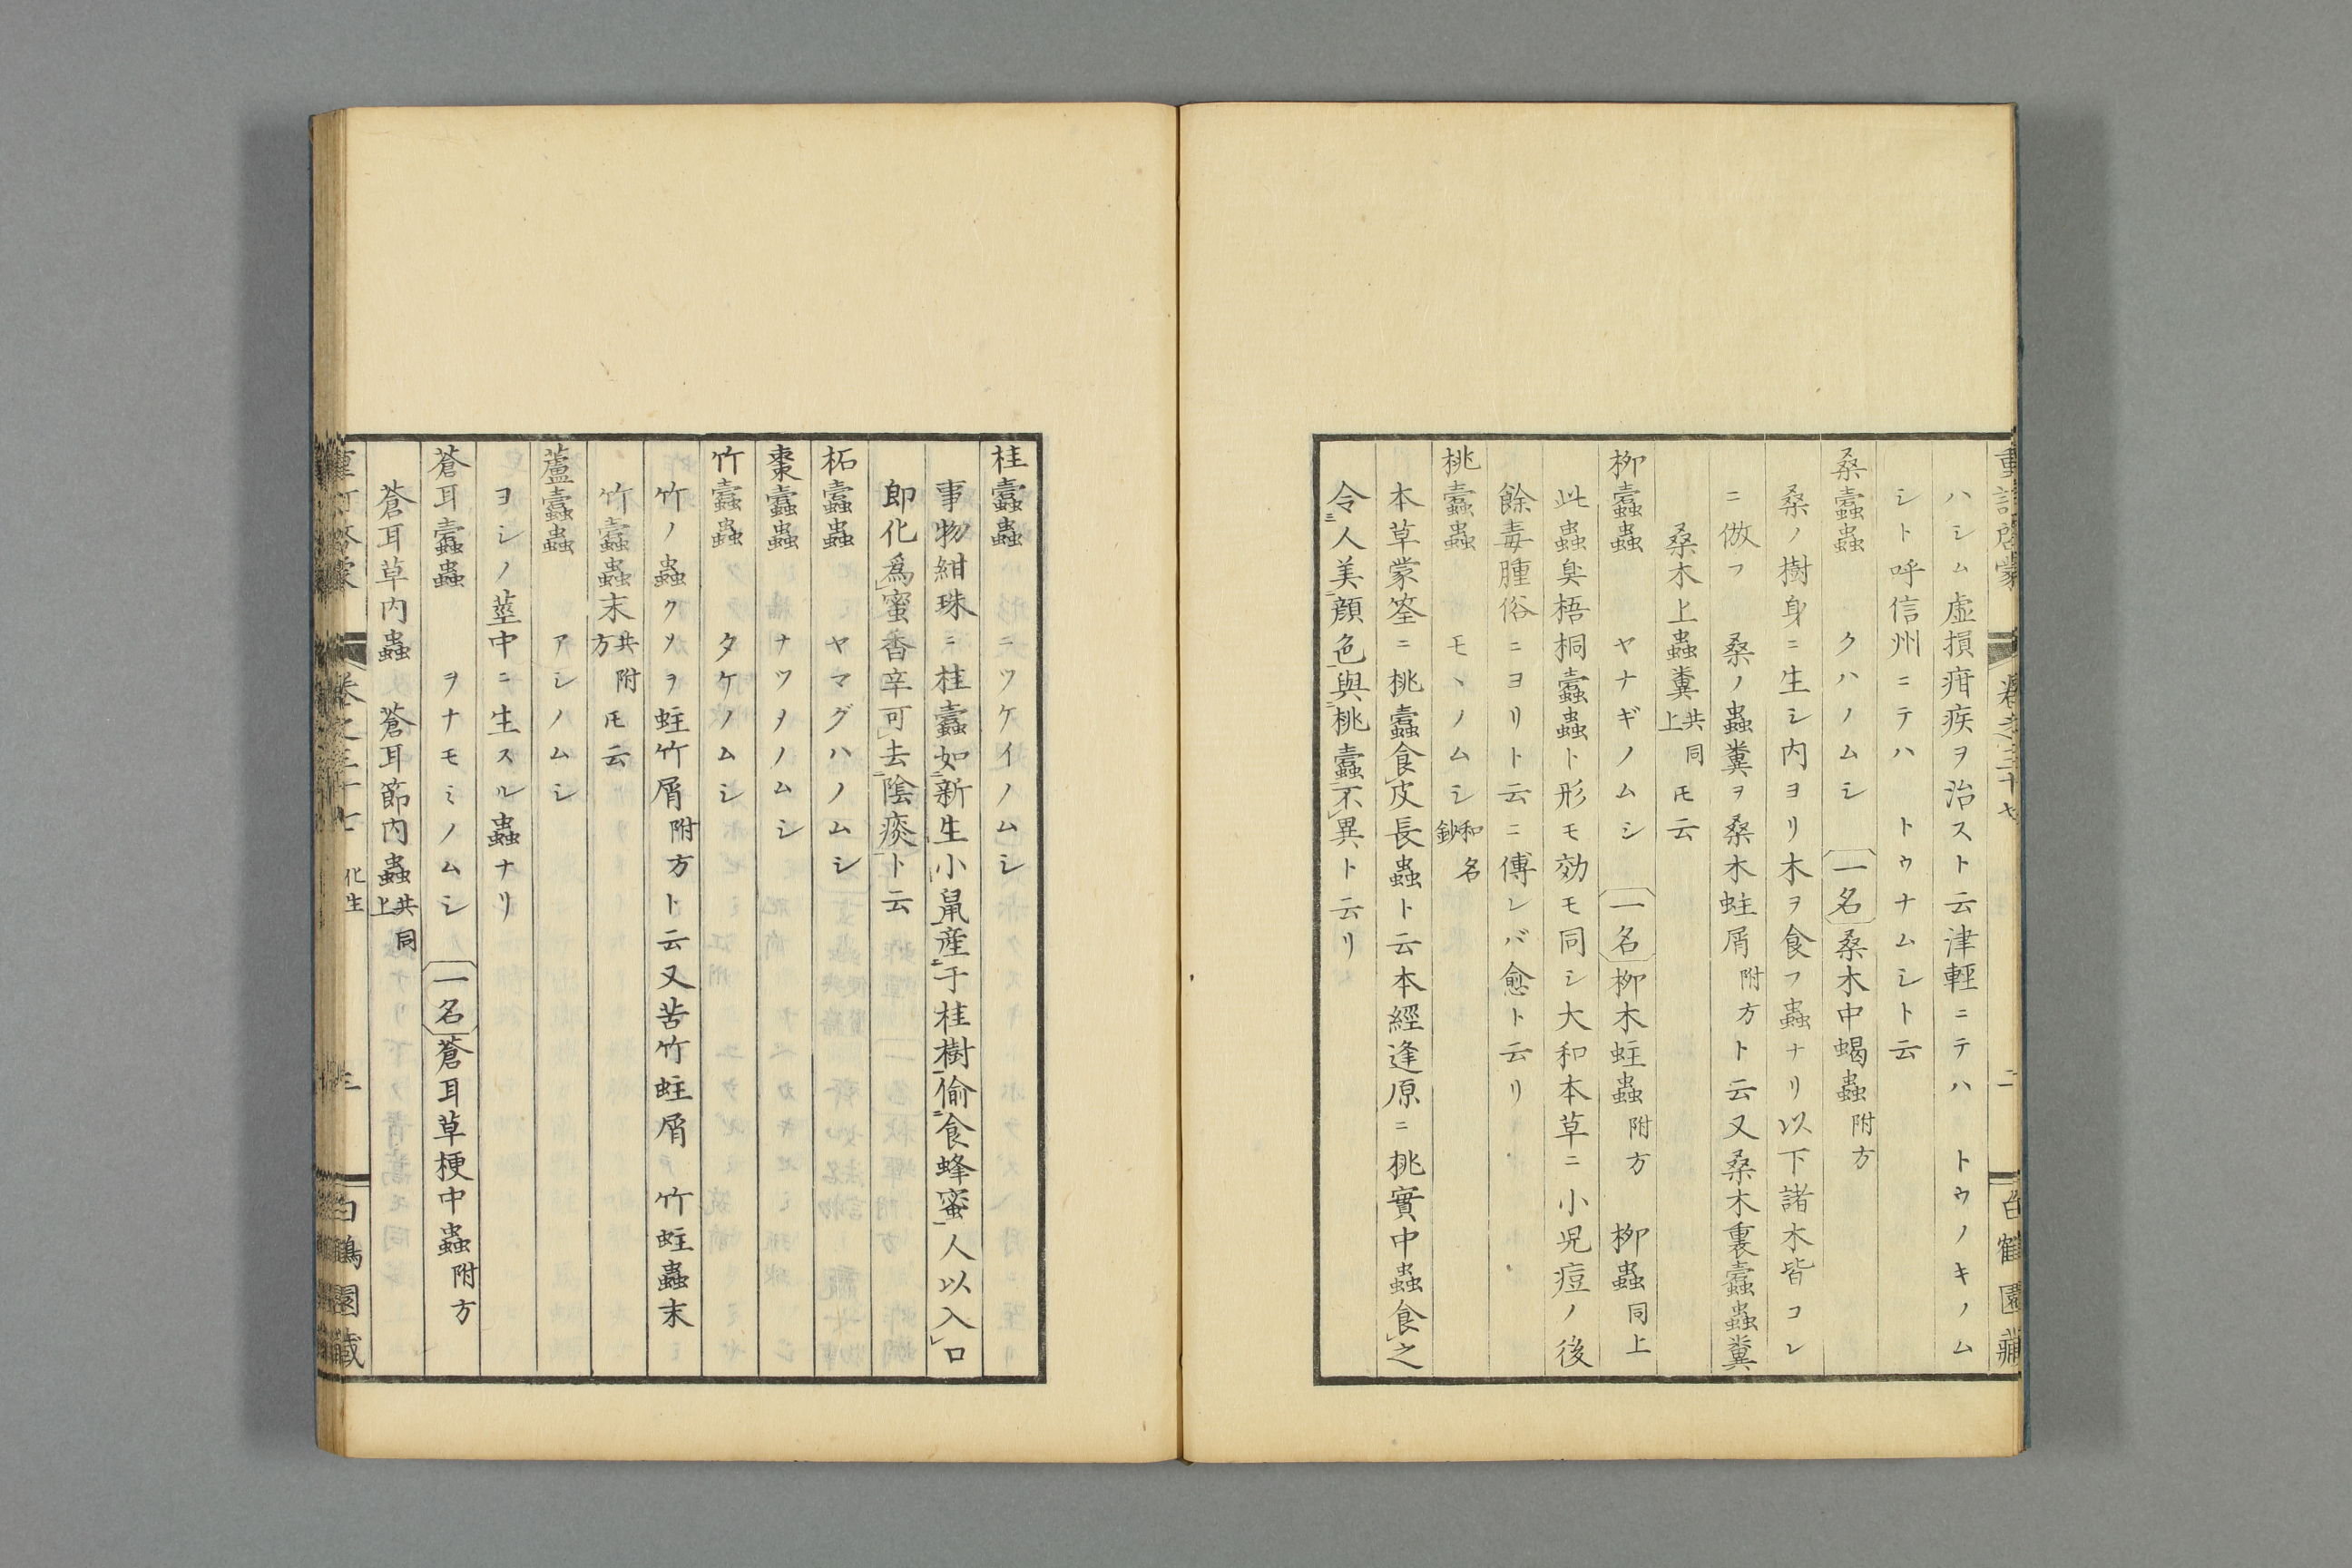 ハシム虚損疳疾ヲ治スト云津輕ニテハ トウノキノム
シト呼信州ニテハ トウナムシト云
桑蠹蟲 クハノムシ 一名桑木中蝎蟲附方
桑ノ樹身ニ生シ内ヨリ木ヲ食フ蟲ナリ以下諸木皆コレ
ニ倣フ 桑ノ蟲糞ヲ桑木蛀屑附方ト云又桑木裏蠹蟲糞
桑木上蟲糞共同上トモ云
柳蠹蟲 ヤナギノムシ 一名柳木蛀蟲附方 柳蟲同上
此蟲臭梧桐蠹蟲ト形モ効モ同シ大和本草ニ小児痘ノ後
餘毒腫俗ニヨリト云ニ傳レバ愈ト云リ
桃蠹蟲 モヽノムシ和名鈔
本草蒙筌ニ桃蠹食皮長蟲ト云本經逢原ニ桃實中蟲食之
令人美顔色與桃蠹不異ト云リ
重訂啓蒙 卷之三十七 二 白鶴園藏
桂蠹蟲 ニツケイノムシ
事物紺珠ニ桂蠹如新生小鼠産于桂樹偷食蜂蜜人以入口
即化爲蜜香辛可去陰痰ト云
柘蠹蟲 ヤマグハノムシ
棗蠹蟲 ナツメノムシ
竹蠹蟲 タケノムシ
竹ノ蟲クソヲ蛀竹屑附方ト云又苦竹蛀屑 竹蛀蟲末
竹蠹蟲末共附方トモ云
蘆蠹蟲 アシノムシ
ヨシノ莖中ニ生スル蟲ナリ
蒼耳蠹蟲 ヲナモミノムシ 一名蒼耳草梗中蟲附方
蒼耳草内蟲 蒼耳節内蟲共同上
重訂啓蒙 卷之三十七 化生 三 白鶴園藏